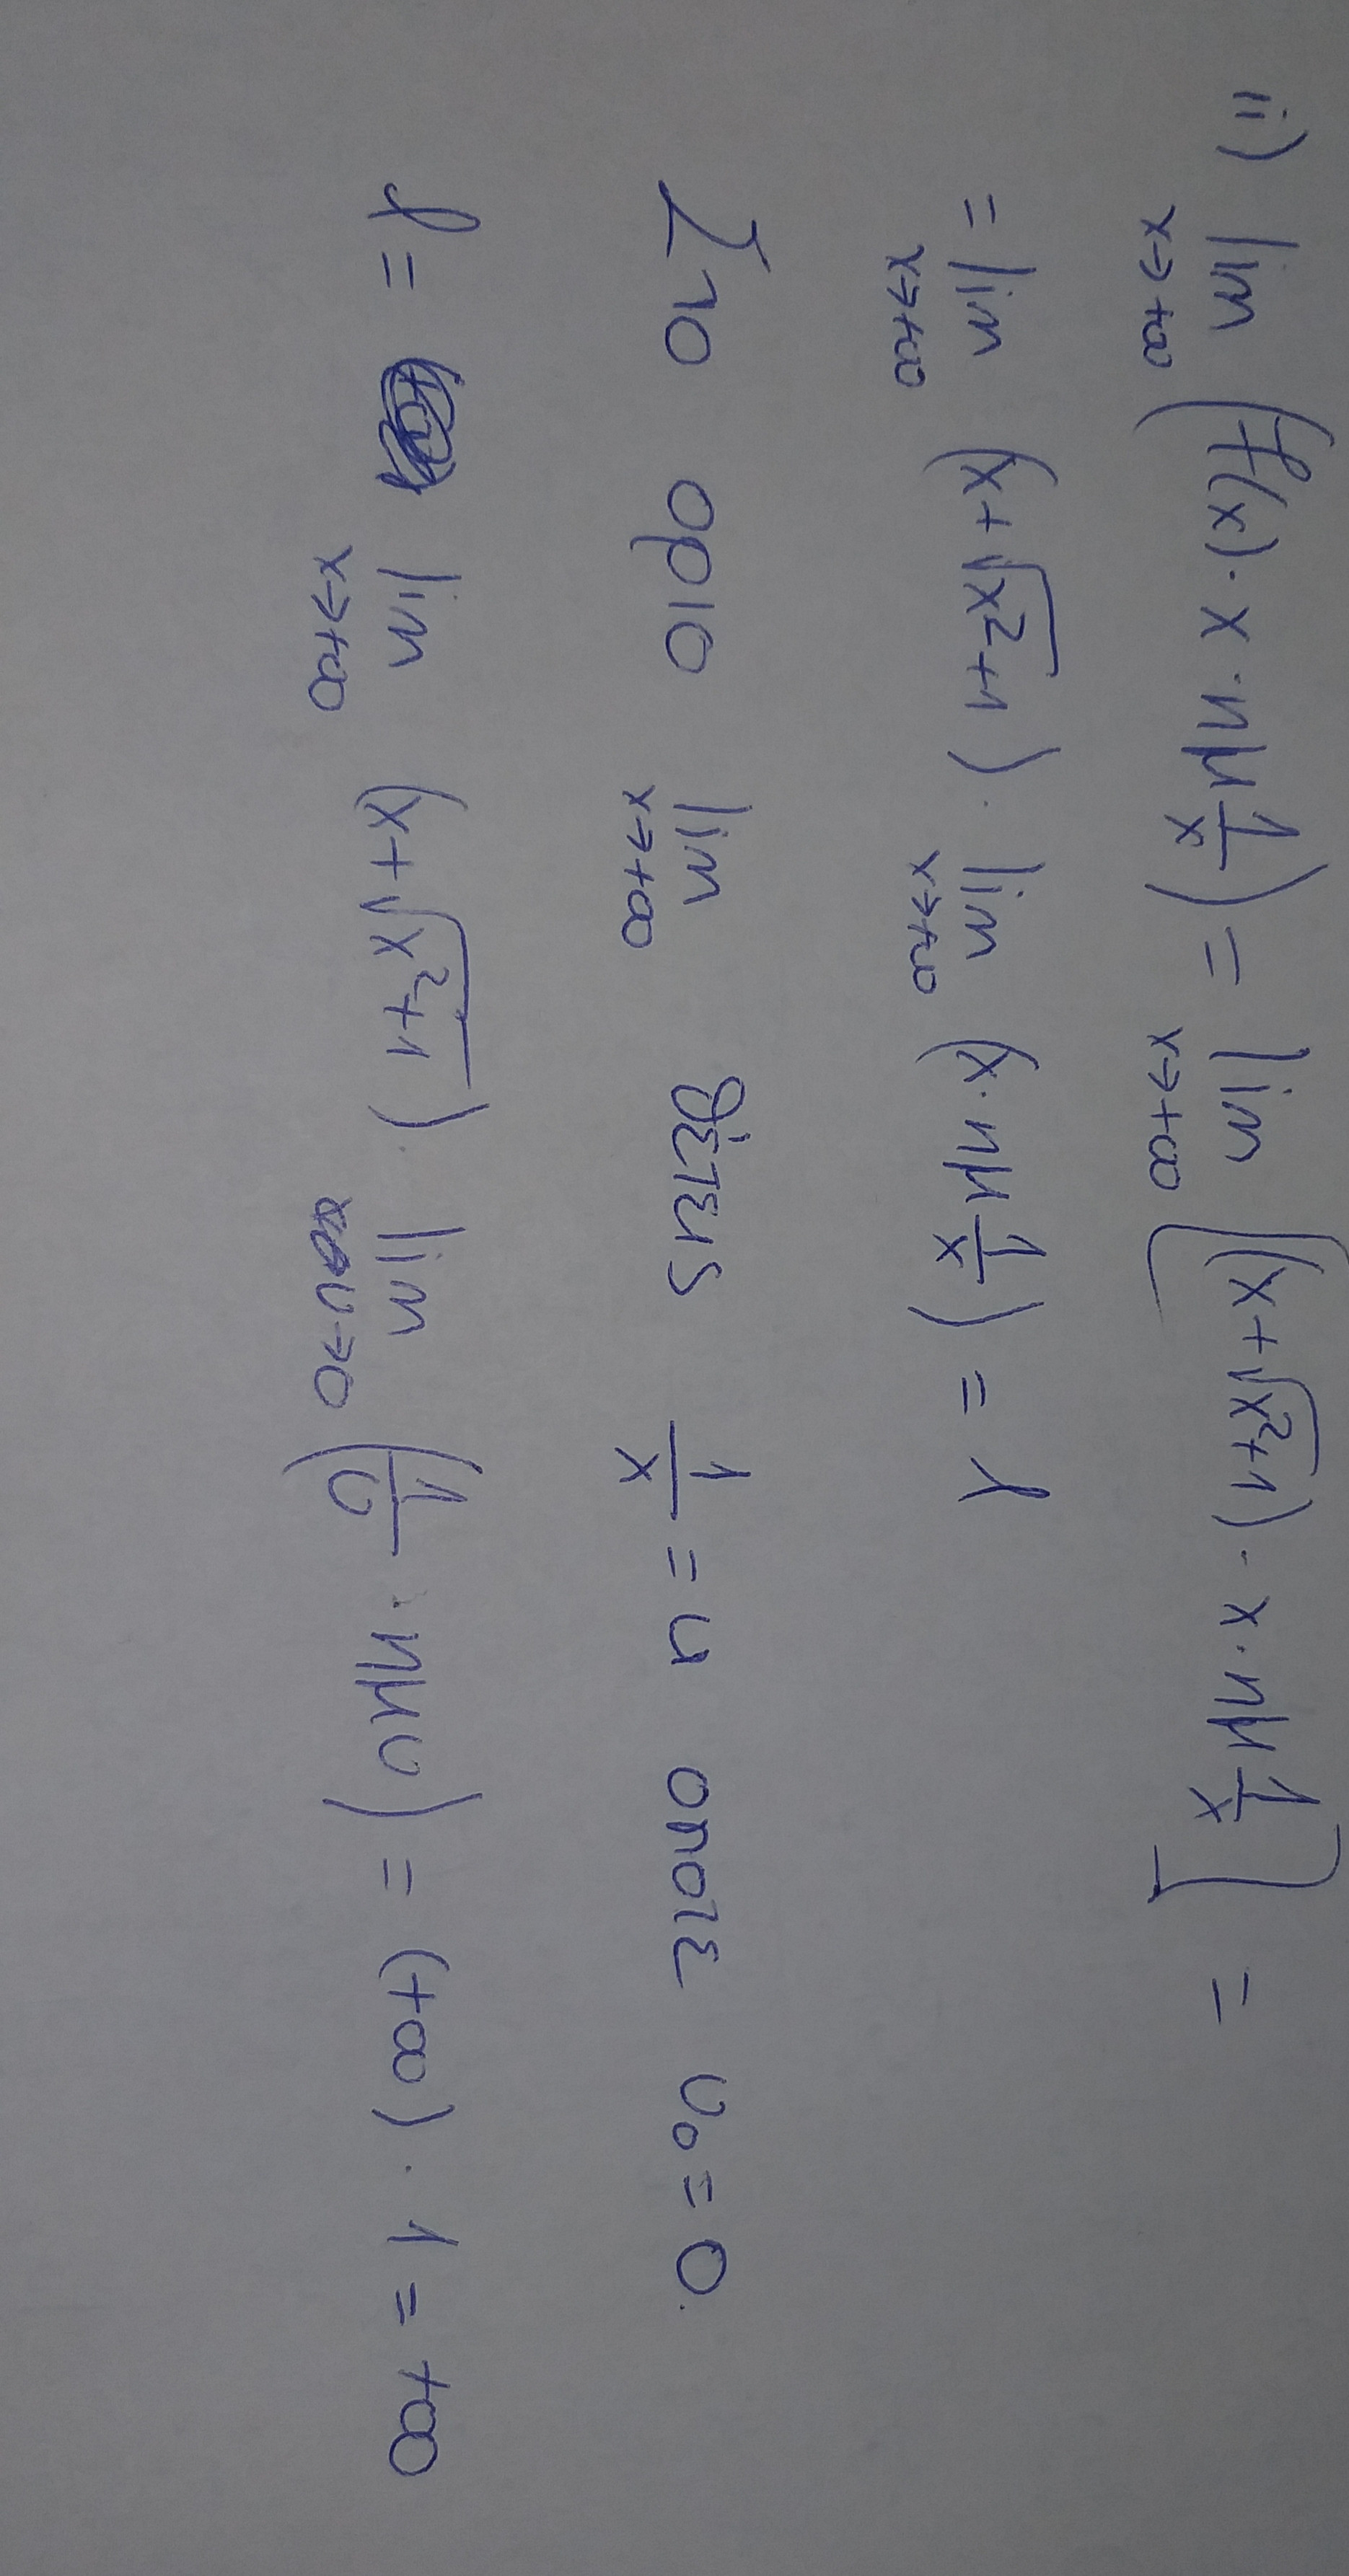 ii) lim x→+∞ (f(x)·x·ημ 1/x) = lim x→+∞ [(x+√(x²+1))·x·ημ 1/x] =
= lim x→+∞ (x+√(x²+1))· lim x→+∞ (x·ημ 1/x) = l
Στο όριο lim x→+∞ θέτεις 1/x = u οπότε u₀=0.
l = lim x→+∞ (x+√(x²+1)) · lim u→0 (1/u · ημu) = (+∞)·1 = +∞